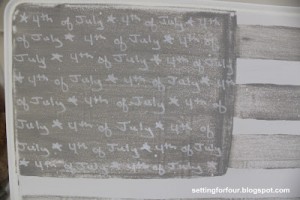 ★ 4th of July ★ 4th of July ★ 4th
of July ★ 4th of July ★ 4th of
July ★ 4th of July ★ 4th of July
★ 4th of July ★ 4th of July ★ 4th
of July ★ 4th of July ★ 4th of
July ★ 4th of July ★ 4th of
July ★ 4th of July ★ 4th of July
★ 4th of July ★ 4th of July ★
settingforfour.blogspot.com